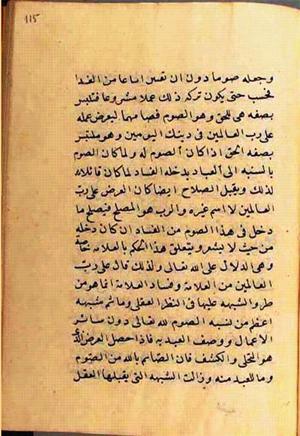 115
وجعله صوما دون ان نفسر امساعا من الغذا
فحسب حتى يكون تركه ذلك عملا مشروعا فتلبس
بصفه هى للحق وهو الصوم فصامهما ليعرض عمله
على رب العالمين فى دينك اليومين وهو متلبس
بصفه الحق اذا كان الصوم له ولما كان الصوم
بالنسبه الى العباد يدخله الفساد لما كان قابلا
لذلك ويقبل الصلاح ايضا كان العرض على رب
العالمين لا اسم غيره والرب هو المصلح فيصلح ما
دخل فى هذا الصوم من الفساد ان كان دخله
من حيث لا يشعر ويتعلق هذا الحكم بالعلامه
وهى الدلال على الله تعالى ولذلك قال على رب
العالمين من العلامه وفساد العلامه انما هو من
طرو الشبهه عليها فى النظر العقلى وما ثم شبهه
اعظم من نسبه الصوم لله تعالى دون سائر
الاعمال ووصف العبد به فاذا حصل العرض
هو التجلى والكشف فان الصائم بالله من الصوم
وما للعبد منه وزالت الشبهه التى يقبلها العقل